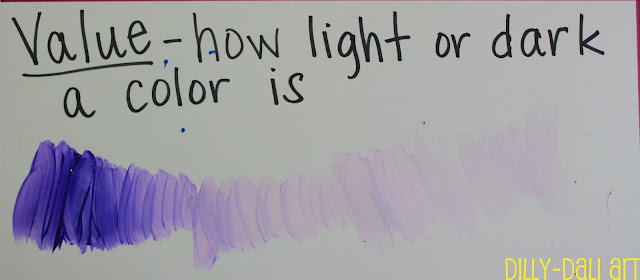 Value - how light or dark
a color is
DILLY-DALI ART